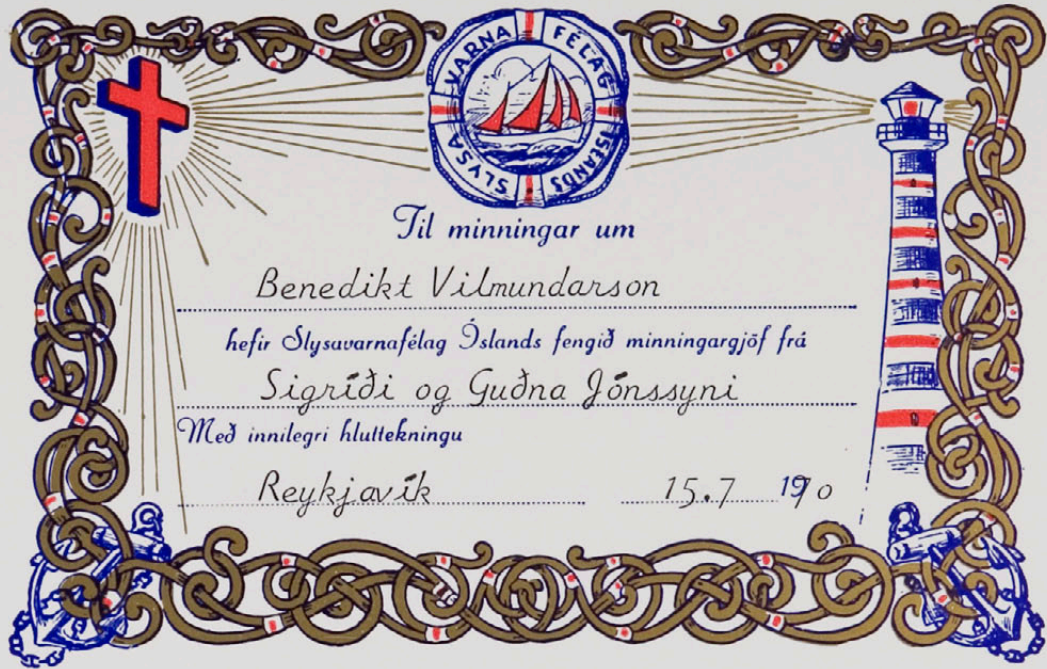 SLYSA VARNA FÉLAG ÍSLANDS
Til minningar um
Benedikt Vilmundarson
hefir Slysavarnafélag Íslands fengið minningargjöf frá
Sigríði og Guðna Jónssyni
Með innilegri hluttekningu
Reykjavík 15.7 1970